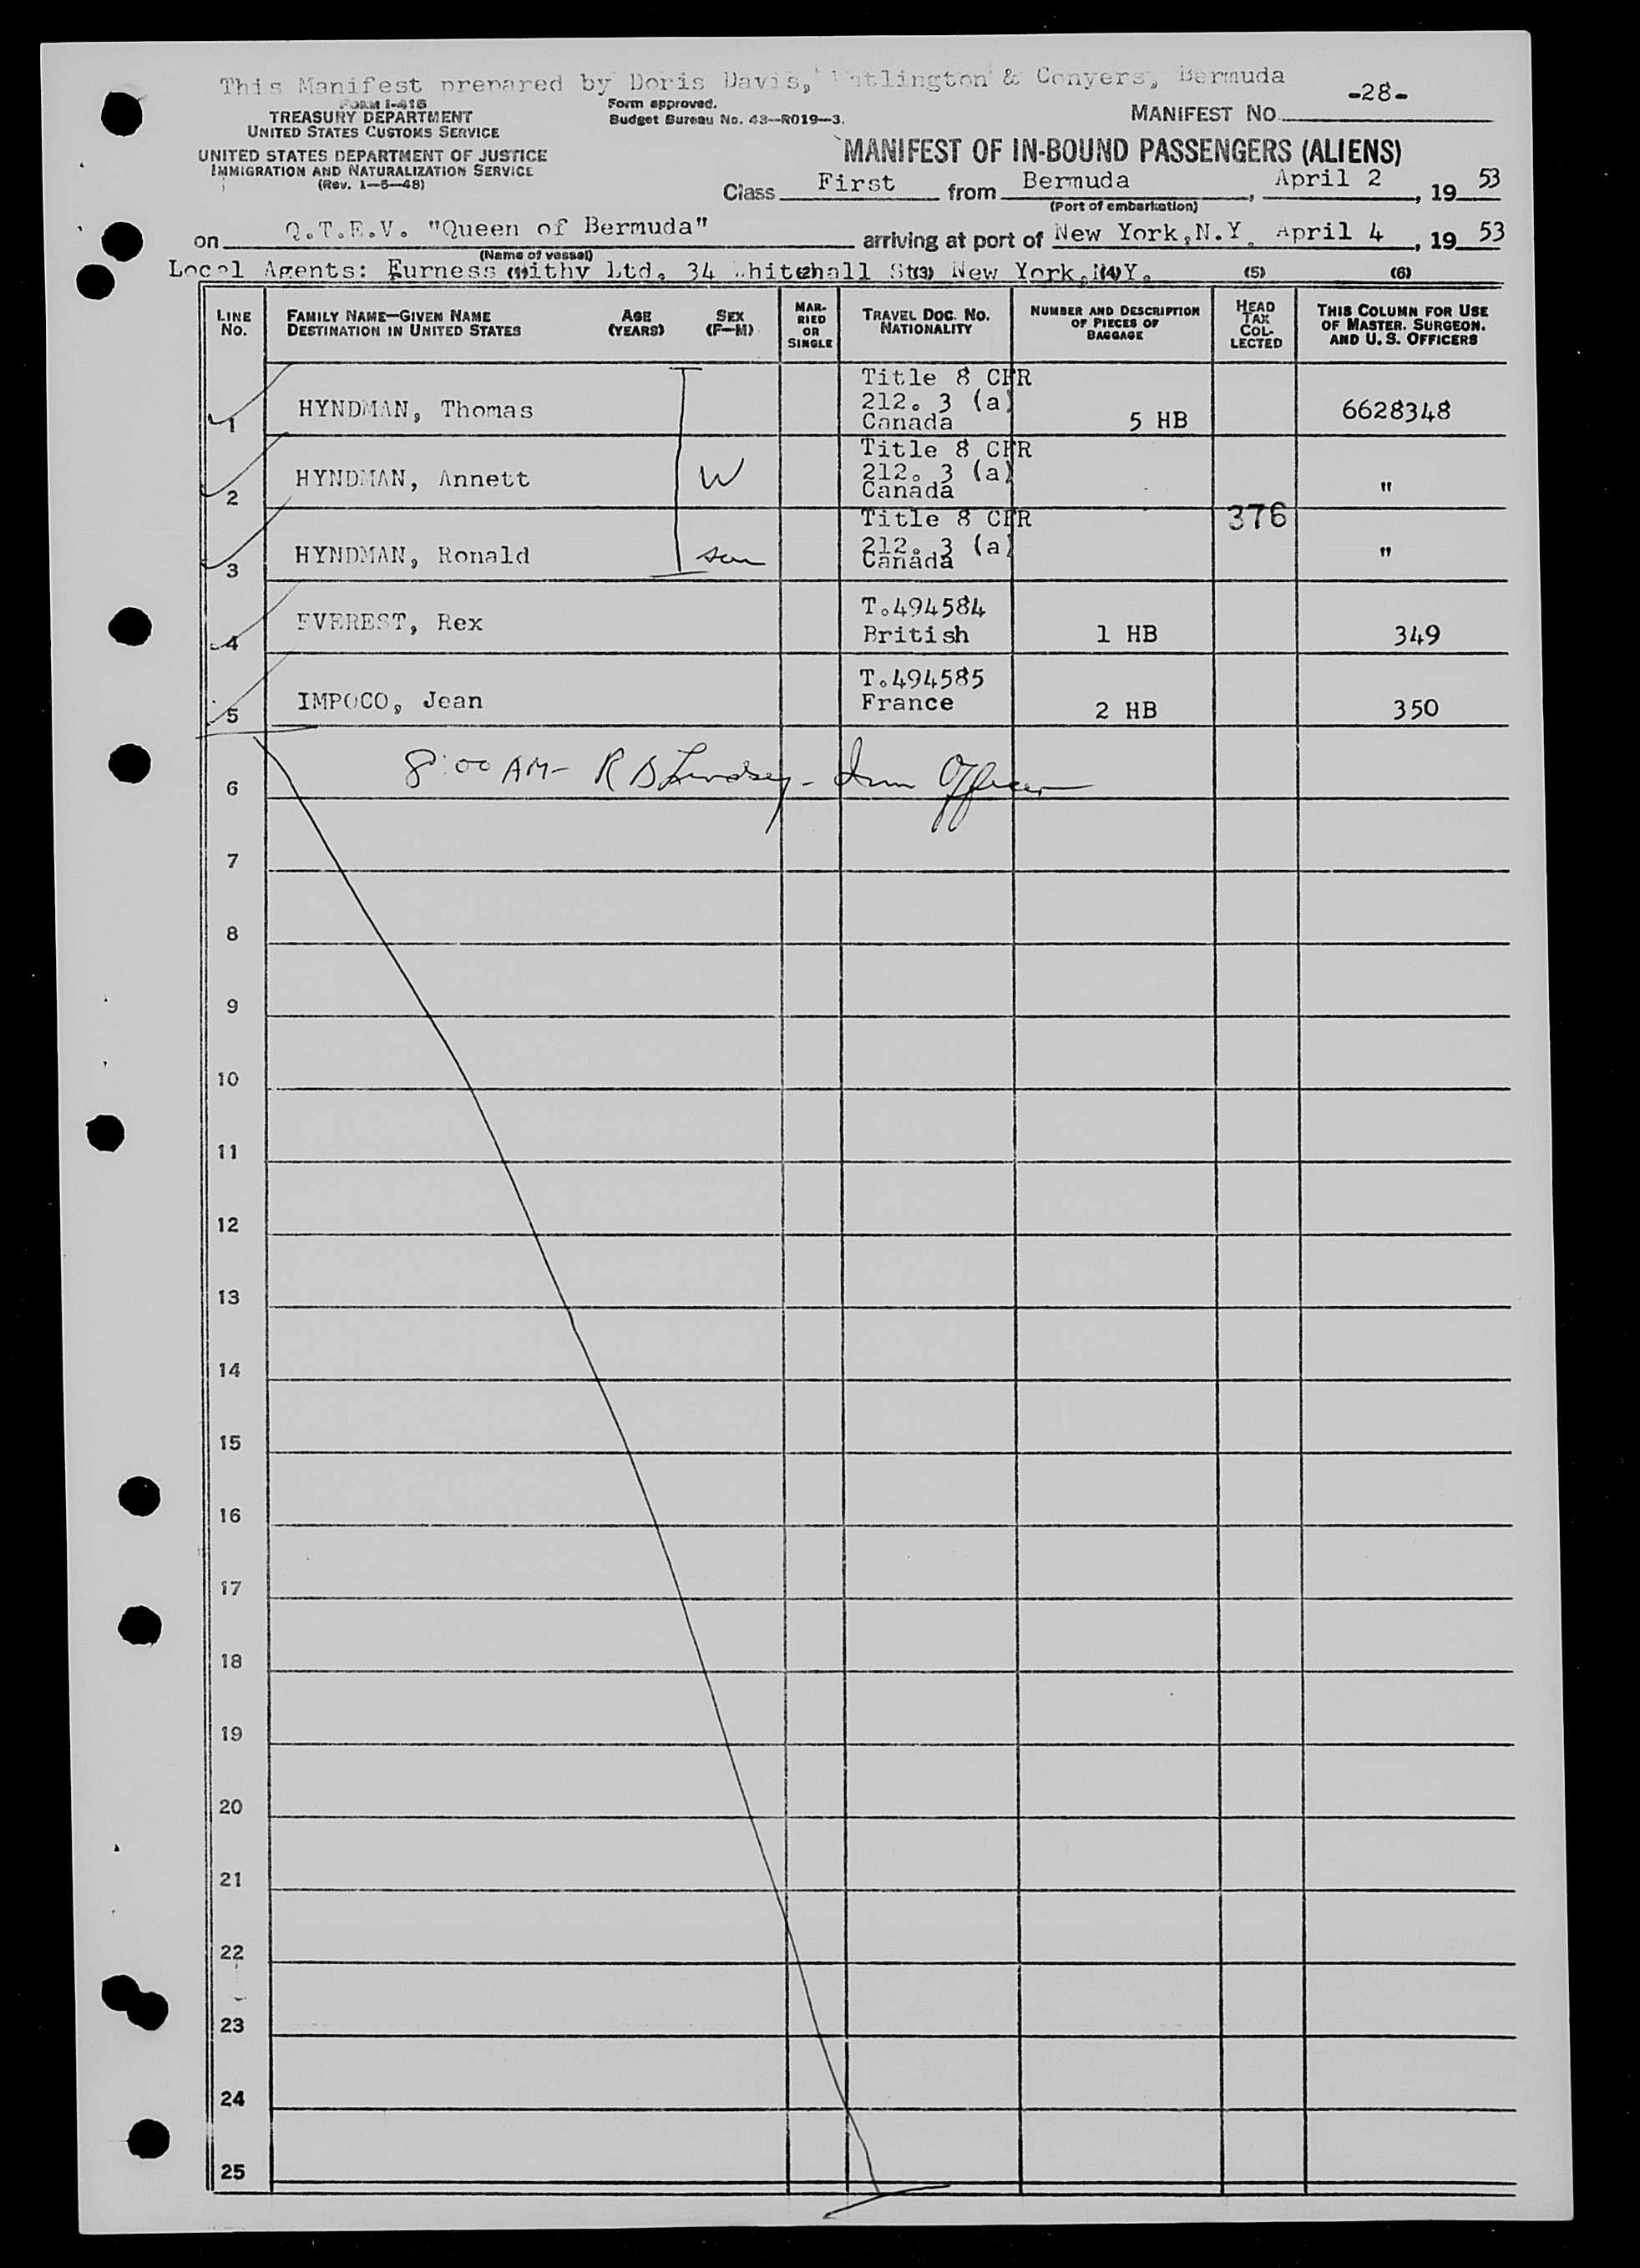 This Manifest prepared by Doris Davis, Watlington & Conyers, Bermuda
-28-
FORM I-415
TREASURY DEPARTMENT
UNITED STATES CUSTOMS SERVICE
Form approved.
Budget Bureau No. 43—R019—3.
MANIFEST NO.
UNITED STATES DEPARTMENT OF JUSTICE
IMMIGRATION AND NATURALIZATION SERVICE
(Rev. 1—5—48)
MANIFEST OF IN-BOUND PASSENGERS (ALIENS)
Class First from Bermuda, April 2, 19 53
(Port of embarkation)
on Q.T.E.V. "Queen of Bermuda" arriving at port of New York, N.Y. April 4, 19 53
(Name of vessel)
Local Agents: Furness Withy Ltd. 34 Whitehall St. New York, N.Y.
(1) (2) (3) (4) (5) (6)
LINE No.
FAMILY NAME—GIVEN NAME
DESTINATION IN UNITED STATES
AGE (YEARS)
SEX (F—M)
MARRIED OR SINGLE
TRAVEL DOC. NO.
NATIONALITY
NUMBER AND DESCRIPTION OF PIECES OF BAGGAGE
HEAD TAX COLLECTED
THIS COLUMN FOR USE OF MASTER, SURGEON, AND U. S. OFFICERS
Title 8 CFR
212. 3 (a)
1 HYNDMAN, Thomas Canada 5 HB 6628348
Title 8 CFR
212. 3 (a)
2 HYNDMAN, Annett W Canada "
Title 8 CFR 376
212. 3 (a)
3 HYNDMAN, Ronald son Canada "
T.494584
4 EVEREST, Rex British 1 HB 349
T.494585
5 IMPOCO, Jean France 2 HB 350
8:00 AM - R D Lindsey - Imm Officer
6
7
8
9
10
11
12
13
14
15
16
17
18
19
20
21
22
23
24
25